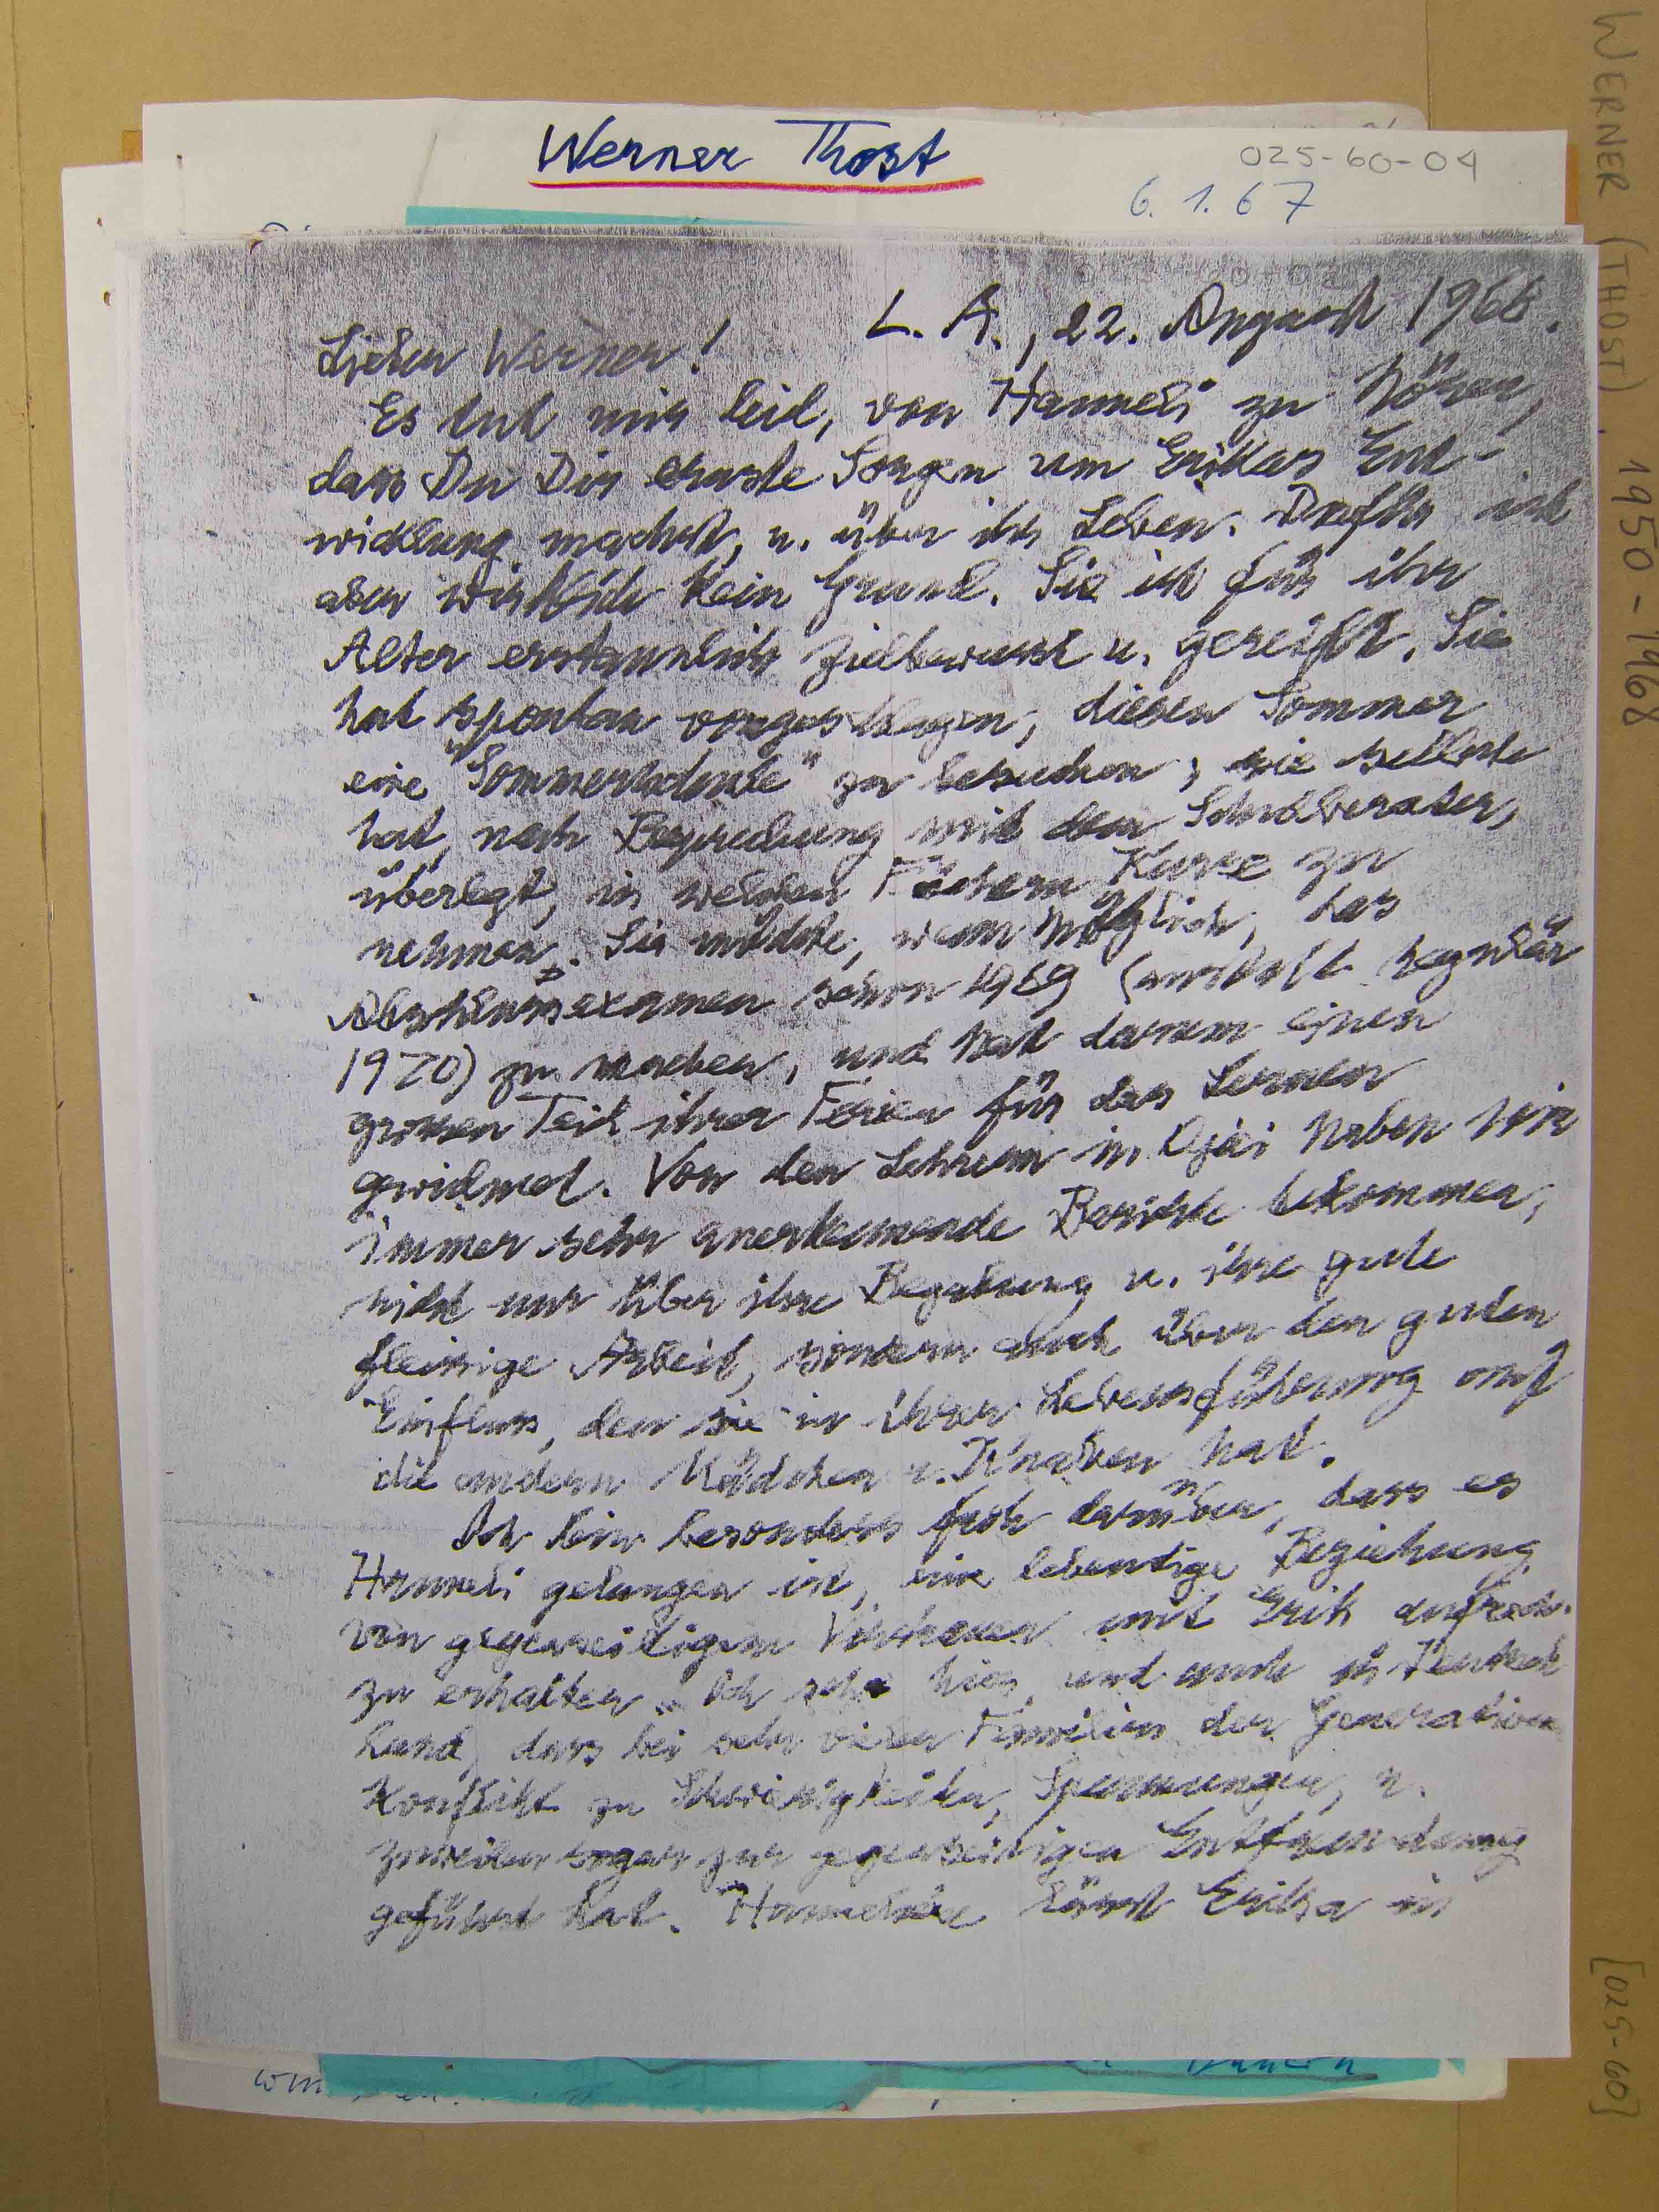 WERNER (THOST) 1950-1968 [025-60]
Werner Thost
025-60-04
6. 1. 67
L. A., 22. August 1968.
Lieber Werner!
Es tut mir leid, von Hanneli zu hören,
dass Du Dir ernste Sorgen um Erikas Ent-
wicklung machst, u. über ihr Leben. Dafür ist
aber wirklich kein Grund. Sie ist für ihr
Alter erstaunlich zielbewusst u. gereift. Sie
hat spontan vorgeschlagen, diesen Sommer
eine "Sommerschule" zu besuchen; sie selbst
hat, nach Besprechung mit dem Schulberater,
überlegt, in welchen Fächern Kurse zu
nehmen. Sie möchte, wenn möglich, das
Abschlussexamen schon 1969 (anstatt regulär
1970) zu machen, und hat darum einen
grossen Teil ihrer Ferien für das Lernen
gewidmet. Von den Lehrern in Ojai haben wir
immer sehr anerkennende Berichte bekommen,
nicht nur über ihre Begabung u. ihre gute
fleissige Arbeit, sondern auch über den guten
Einfluss, den sie in ihrer Lebensführung auf
die andern Mädchen u. Knaben hat.
Ich bin besonders froh darüber, dass es
Hanneli gelungen ist, eine lebendige Beziehung
von gegenseitigem Vertrauen mit Erika aufrecht
zu erhalten. Ich sehe hier und auch in Deutsch
land, dass bei sehr vielen Familien der Generation
Konflikt zu Schwierigkeiten, Spannungen, u.
zuweilen sogar zur gegenseitigen Entfremdung
geführt hat. Hannelore lässt Erika in